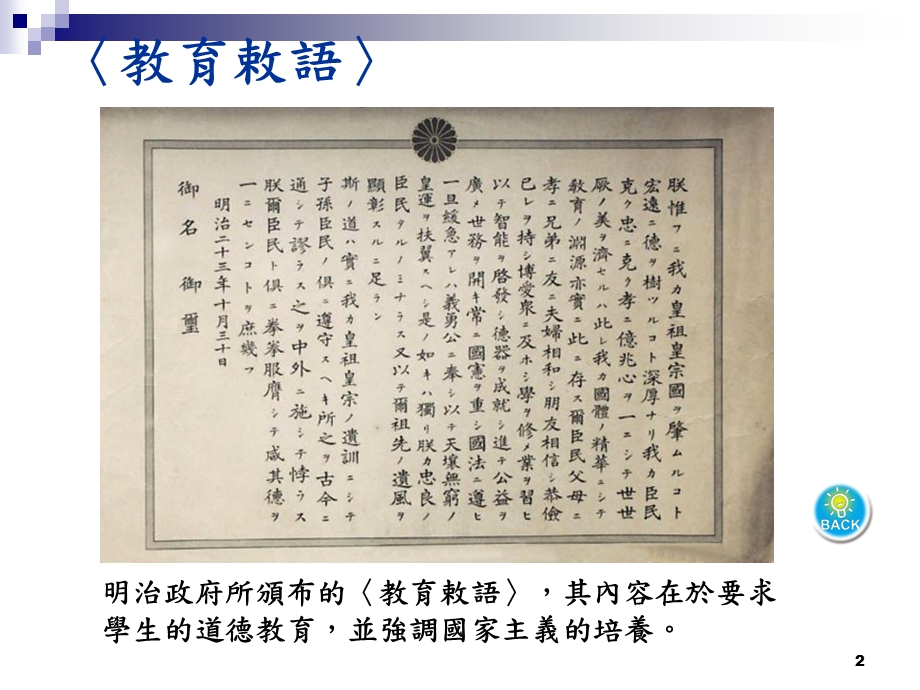 〈教育敕語〉
朕惟フニ我カ皇祖皇宗國ヲ肇ムルコト
宏遠ニ德ヲ樹ツルコト深厚ナリ我カ臣民
克ク忠ニ克ク孝ニ億兆心ヲ一ニシテ世世
厥ノ美ヲ濟セルハ此レ我カ國體ノ精華ニシテ
敎育ノ淵源亦實ニ此ニ存ス爾臣民父母ニ
孝ニ兄弟ニ友ニ夫婦相和シ朋友相信シ恭儉
己レヲ持シ博愛衆ニ及ホシ學ヲ修メ業ヲ習ヒ
以テ智能ヲ啓發シ德器ヲ成就シ進テ公益ヲ
廣メ世務ヲ開キ常ニ國憲ヲ重シ國法ニ遵ヒ
一旦緩急アレハ義勇公ニ奉シ以テ天壤無窮ノ
皇運ヲ扶翼スヘシ是ノ如キハ獨リ朕カ忠良ノ
臣民タルノミナラス又以テ爾祖先ノ遺風ヲ
顯彰スルニ足ラン
斯ノ道ハ實ニ我カ皇祖皇宗ノ遺訓ニシテ
子孫臣民ノ俱ニ遵守スヘキ所之ヲ古今ニ
通シテ謬ラス之ヲ中外ニ施シテ悖ラス
朕爾臣民ト俱ニ拳拳服膺シテ咸其德ヲ
一ニセンコトヲ庶幾フ
明治二十三年十月三十日
御名 御璽
BACK
明治政府所頒布的〈教育敕語〉，其內容在於要求
學生的道德教育，並強調國家主義的培養。
2